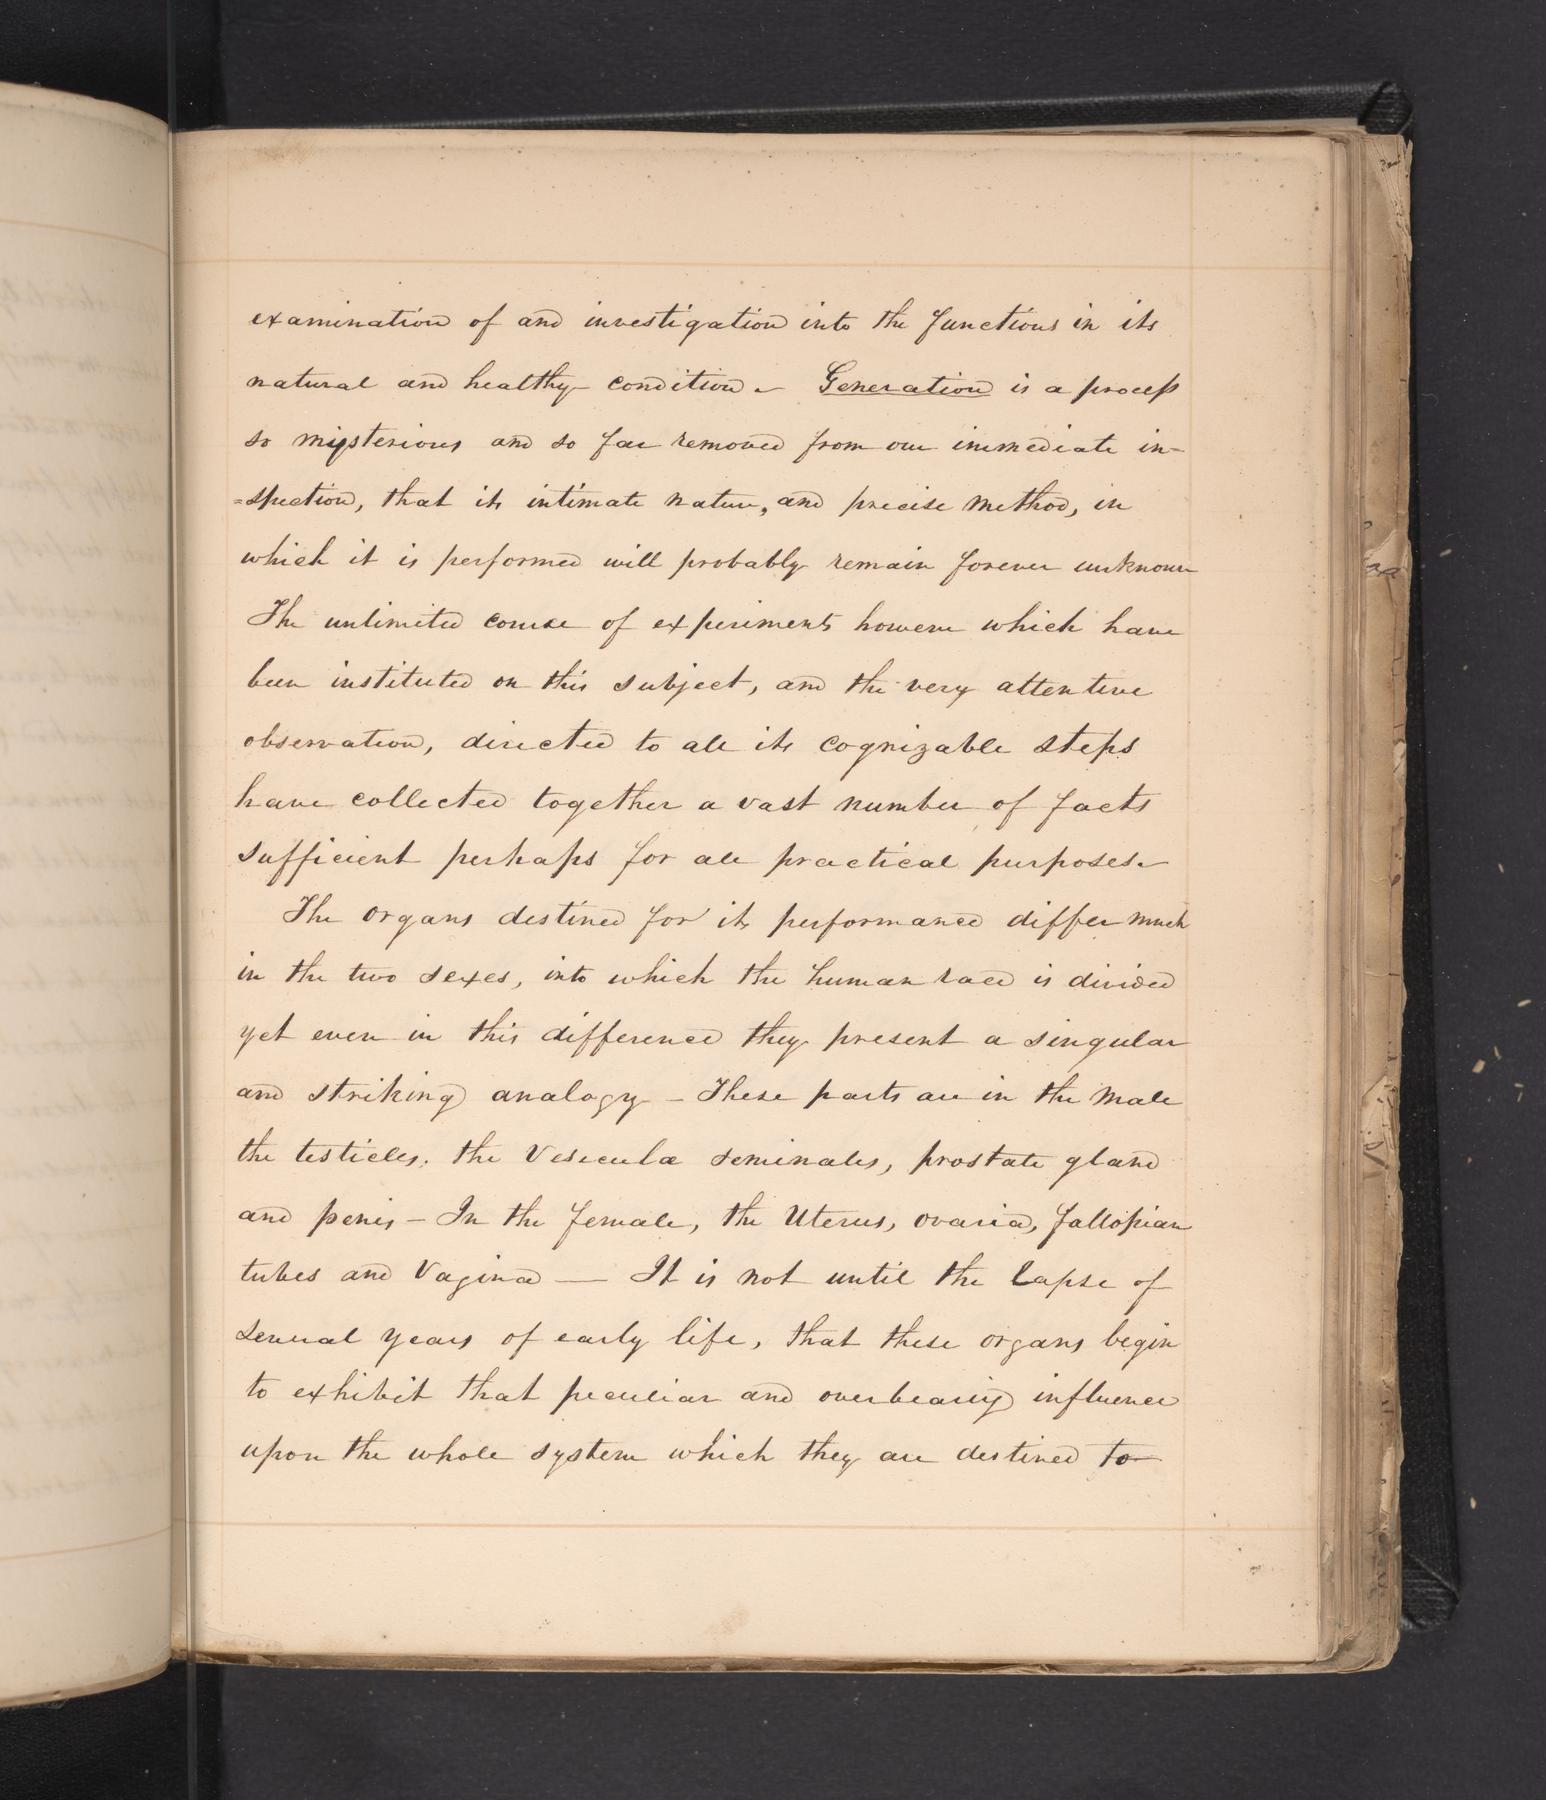 examination of and investigation into the functions in its
natural and healthy condition - Generation is a process
so mysterious and so far removed from our immediate in-
=spection, that its intimate nature, and precise method, in
which it is performed will probably remain forever unknown
The unlimited course of experiments however which have
been instituted on this subject, and the very attentive
observation, directed to all its cognizable steps
have collected together a vast number of facts
sufficient perhaps for all practical purposes -
The organs destined for its performance differ much
in the two sexes, into which the human race is divided
yet even in this difference they present a singular
and striking analogy - These parts are in the male
the testicles, the Vesiculæ seminales, prostate gland
and penis - In the female, the Uterus, ovaria, fallopian
tubes and Vagina — It is not until the lapse of
several years of early life, that these organs begin
to exhibit that peculiar and overbearing influence
upon the whole system which they are destined to